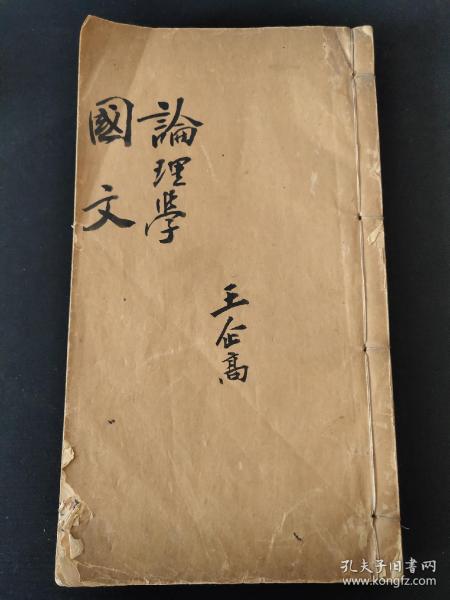 論理學
國文
王企高
孔夫子旧书网
www.kongfz.com